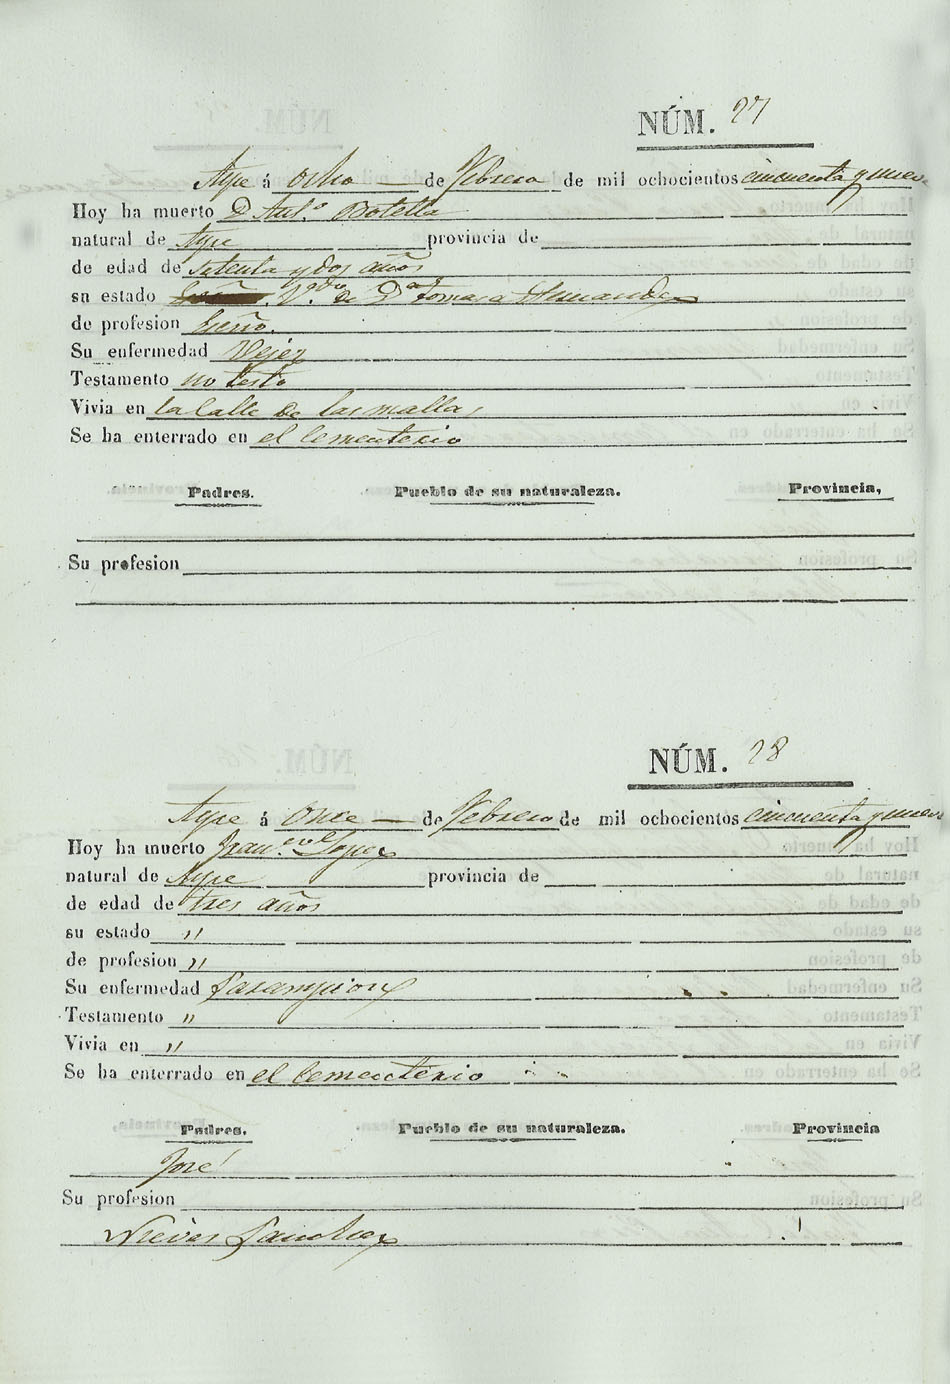 NÚM. 27
Aspe á ocho de Febrero de mil ochocientos cincuenta y nueve
Hoy ha muerto D Ant.º Botella
natural de Aspe provincia de
de edad de setenta y dos años
su estado V.do de D.a Tomasa Hernandez
de profesion
Su enfermedad Vejez
Testamento no testó
Vivia en la Calle de las mallas
Se ha enterrado en el Cementerio
Padres. Pueblo de su naturaleza. Provincia,
Su profesion
NÚM. 28
Aspe á Once de Febrero de mil ochocientos cincuenta y nueve
Hoy ha muerto Lopez
natural de Aspe provincia de
de edad de tres años
su estado "
de profesion "
Su enfermedad Sarampion
Testamento "
Vivia en "
Se ha enterrado en el Cementerio
Padres. Pueblo de su naturaleza. Provincia
José
Su profesion
Nieves Sanchez